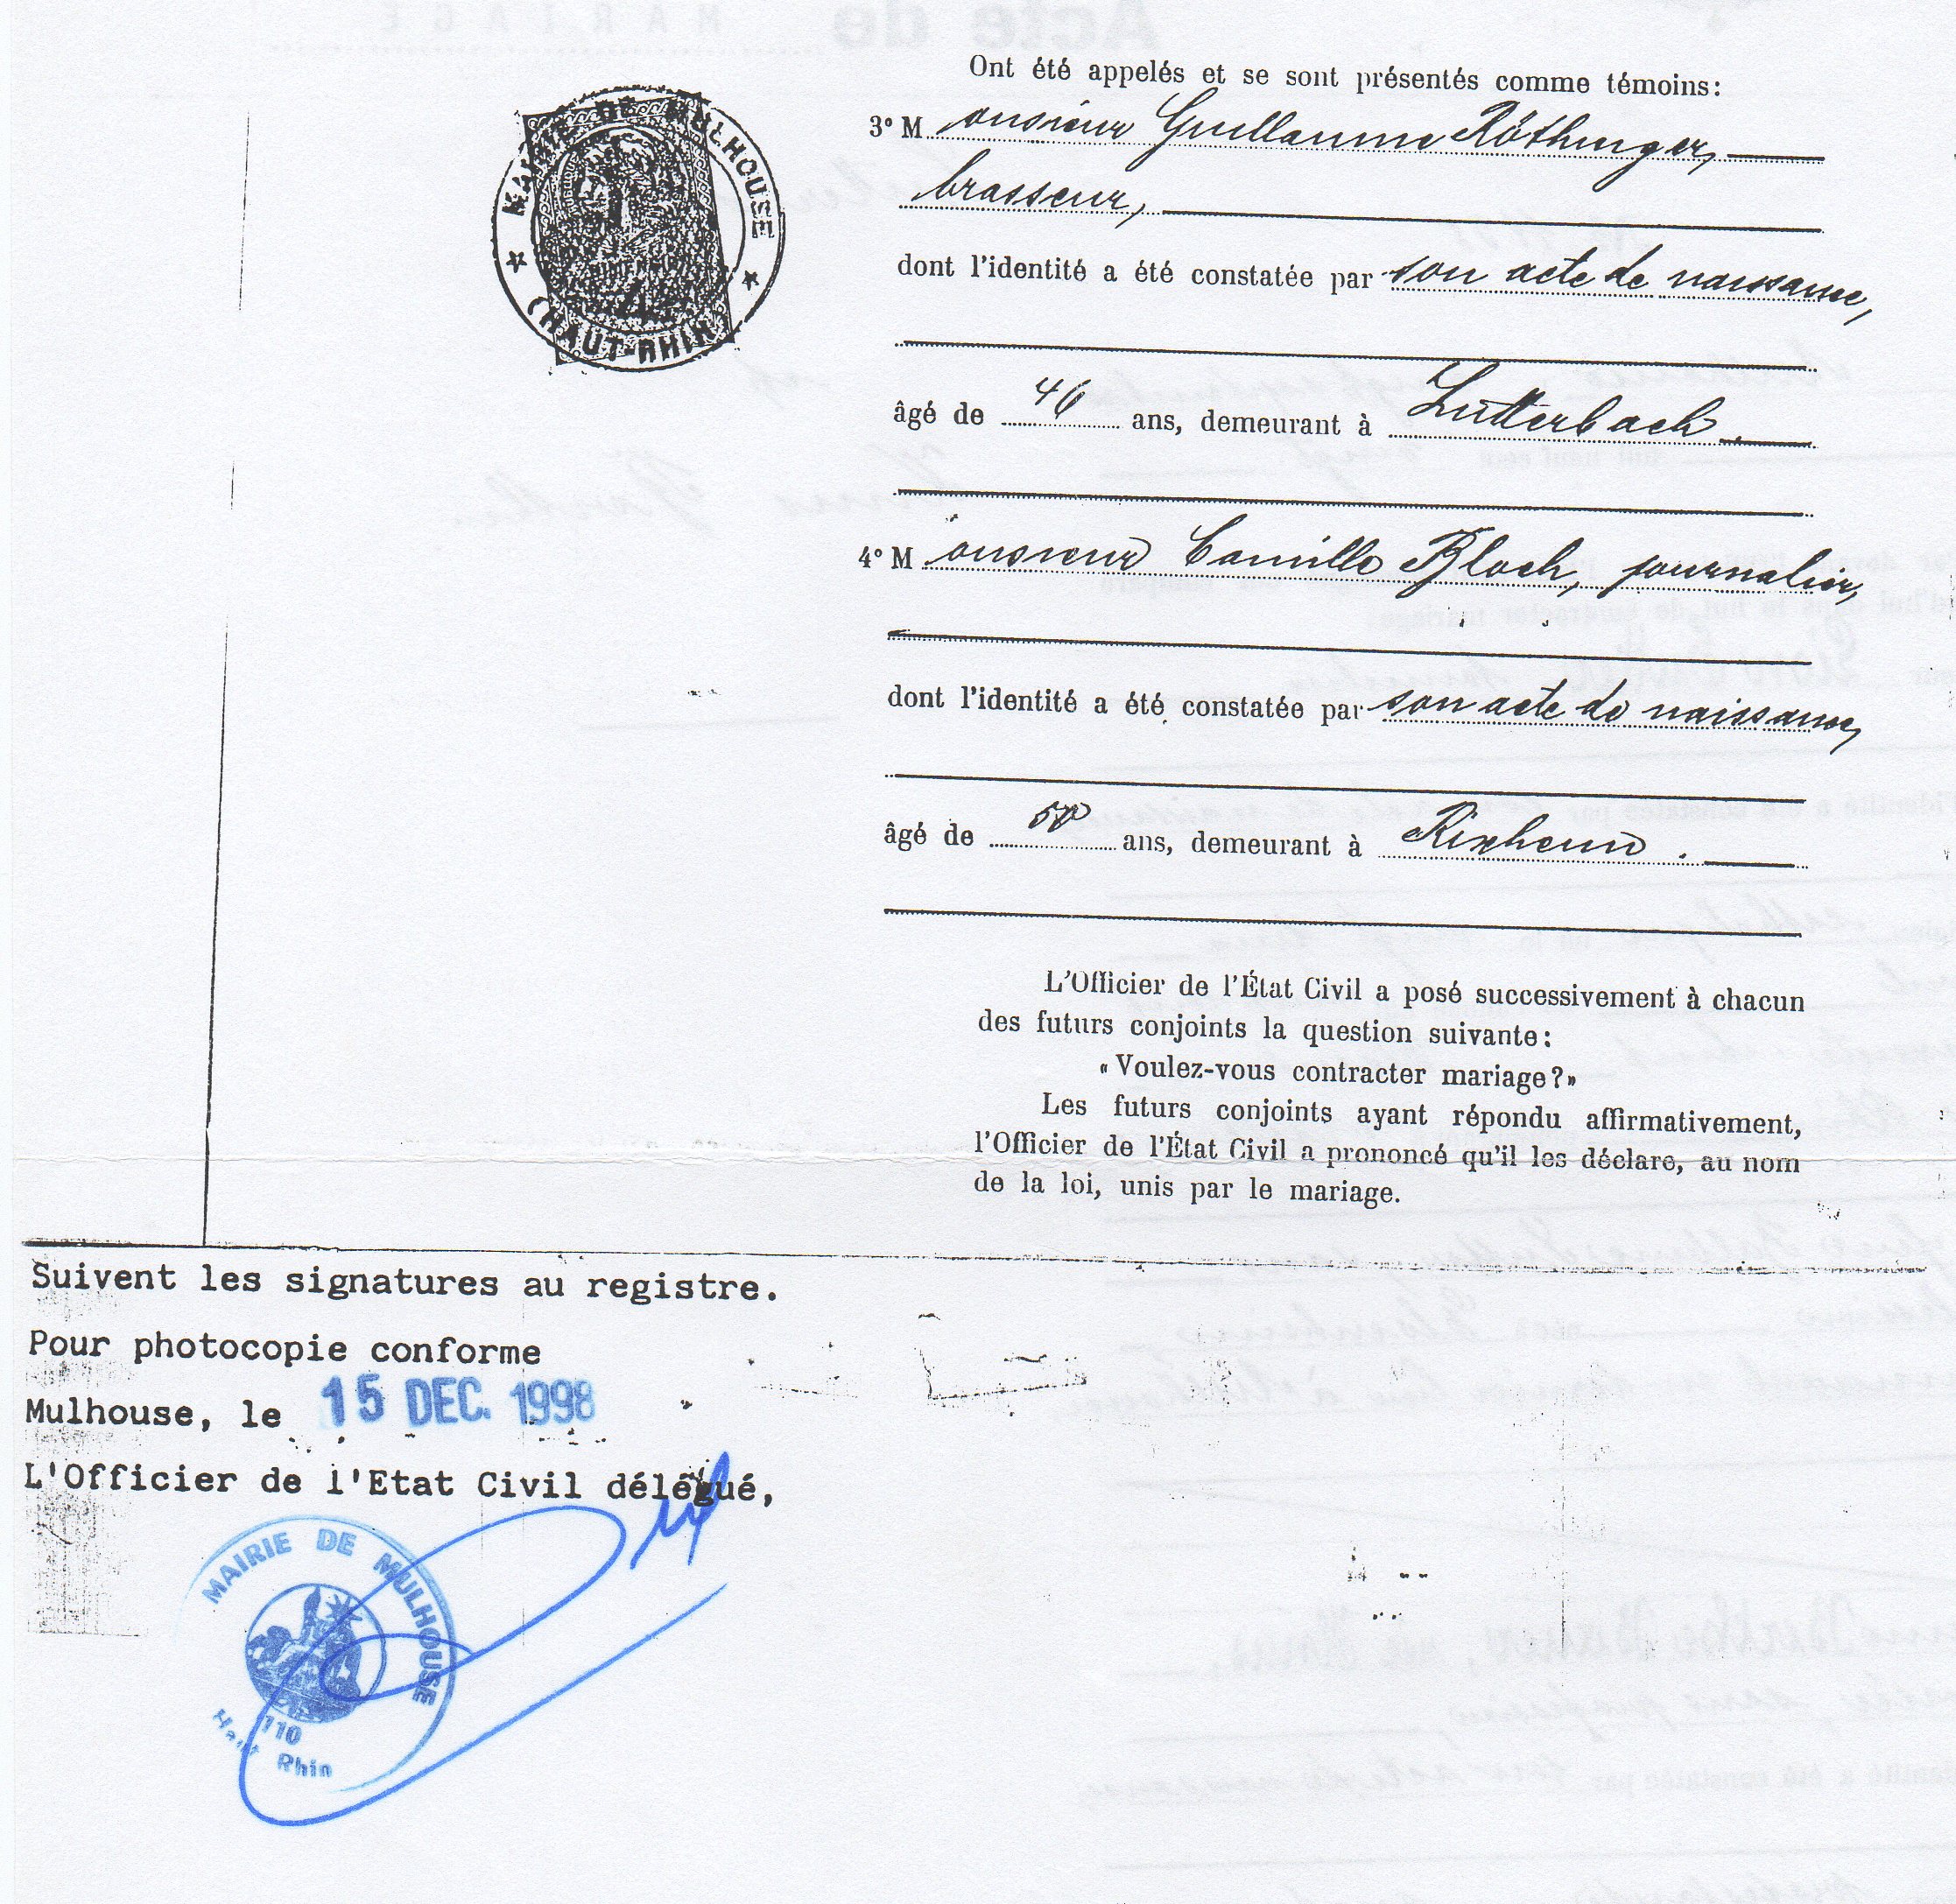 Ont été appelés et se sont présentés comme témoins:
3° Monsieur Guillaume Röthinger,
brasseur,
dont l'identité a été constatée par son acte de naissance,
âgé de 46 ans, demeurant à Lutterbach.
4° Monsieur Camille Bloch, journalier,
dont l'identité a été constatée par son acte de naissance,
âgé de ans, demeurant à Rixheim.
L'Officier de l'État Civil a posé successivement à chacun
des futurs conjoints la question suivante:
«Voulez-vous contracter mariage?»
Les futurs conjoints ayant répondu affirmativement,
l'Officier de l'État Civil a prononcé qu'il les déclare, au nom
de la loi, unis par le mariage.
MAIRIE DE MULHOUSE
(HAUT-RHIN)
Suivent les signatures au registre.
Pour photocopie conforme
Mulhouse, le 15 DEC. 1998
L'Officier de l'Etat Civil délégué,
MAIRIE DE MULHOUSE
110
Haut Rhin